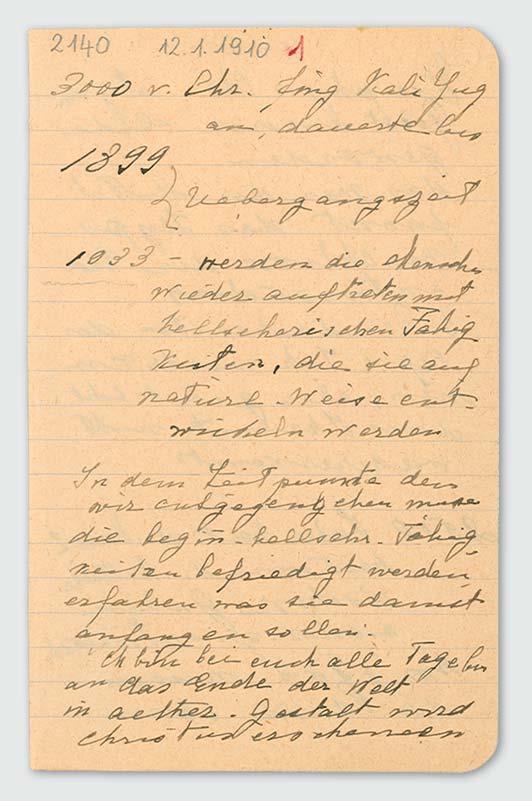 2140 12.1.1910 1
3000 v. Chr. fing Kali Yug
an, dauerte bis
1899
Uebergangszeit
1933 - werden die Menschen
wieder auftreten mit
hellseherischen Fähig
keiten, die sie auf
natürl. Weise ent-
wickeln werden
In dem Zeitpunkte dem
wir entgegengehen müssen
die begin. hellsehr. Fähig
keiten befriedigt werden,
erfahren was sie damit
anfangen sollen.
Ich bin bei euch alle Tage bis
an das Ende der Welt
in aether. Gestalt wird
Christus erscheinen